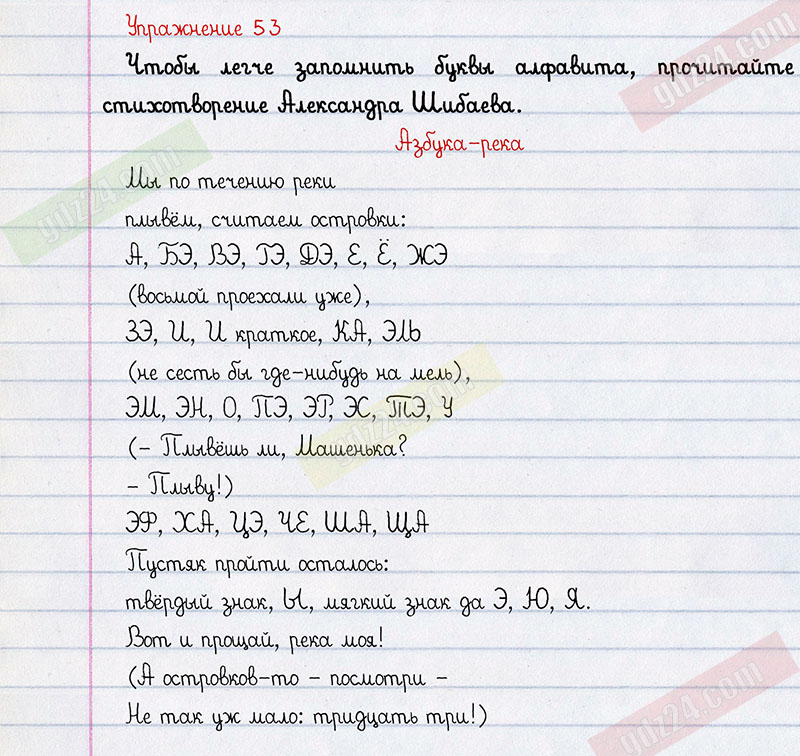 Упражнение 53
Чтобы легче запомнить буквы алфавита, прочитайте
стихотворение Александра Шибаева.
Азбука-река
Мы по течению реки
плывём, считаем островки:
А, БЭ, ВЭ, ГЭ, ДЭ, Е, Ё, ЖЭ
(восьмой проехали уже),
ЗЭ, И, И краткое, КА, ЭЛЬ
(не сесть бы где-нибудь на мель),
ЭМ, ЭН, О, ПЭ, ЭР, ЭС, ТЭ, У
(– Плывёшь ли, Машенька?
– Плыву!)
ЭФ, ХА, ЦЭ, ЧЕ, ША, ЩА
Пустяк пройти осталось:
твёрдый знак, Ы, мягкий знак да Э, Ю, Я.
Вот и прощай, река моя!
(А островков-то – посмотри –
Не так уж мало: тридцать три!)
gdz24.com
gdz24.com
gdz24.com
gdz24.com